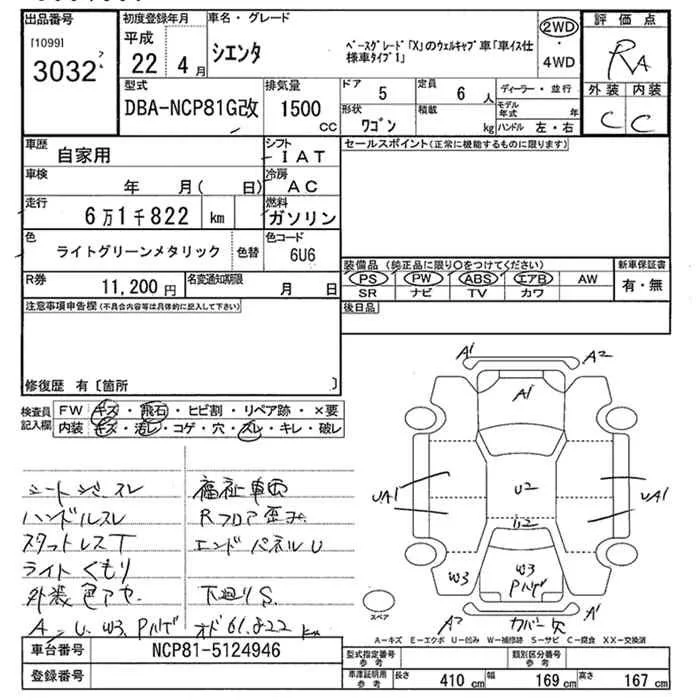 出品番号
[1099]
3032
初度登録年月
平成
22 4月
車名・グレード
シエンタ
ベースグレード「X」のウェルキャブ車「車イス仕
様車タイプ1」
2WD
・
4WD
評価点
RA
外装 内装
C C
型式
DBA-NCP81G改
排気量
1500 CC
ドア 5
定員 6人
形状
ワゴン
積載 kg
ディーラー・並行
モデル年式 年
ハンドル 左・右
車歴 自家用
シフト IAT
車検 年 月( 日)
冷房 AC
走行 6万1千822 km
燃料 ガソリン
色 ライトグリーンメタリック 色替
色コード 6U6
R券 11,200円
名変通知期限 月 日
セールスポイント(正常に機能するものに限ります)
装備品(純正品に限り〇をつけてください)
PS PW ABS エアB AW
SR ナビ TV カワ
新車保証書
有・無
後日品
注意事項申告欄(不具合内容等は具体的に記入して下さい)
修復歴 有〔箇所 〕
検査員
記入欄
FW キズ・飛石・ヒビ割・リペア跡・×要
内装 キズ・汚レ・コゲ・穴・スレ・キレ・破レ
シートシミ スレ
ハンドルスレ
スタットレスT
ライトくもり
外装色アセ
A-U. W3. Pハゲ
福祉車両
Rフロア歪み
エンドパネルU
下廻りS.
オド61.822 km
A1 A2
A1
UA1 U2 UA1
U2
W3 W3
Pハゲ
A2 カバー欠 A1
スペア
A-キズ E-エクボ U-凹み W-補修跡 S-サビ C-腐食 XX-交換済
車台番号 NCP81-5124946
登録番号
型式指定番号
参考
類別区分番号
参考
車庫証明用
参考
長さ 410 cm 幅 169 cm 高さ 167 cm